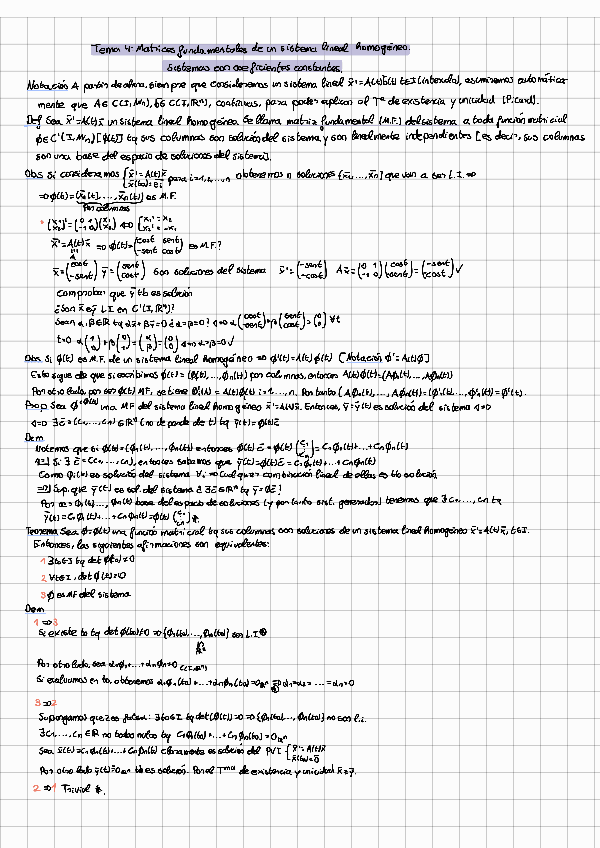 Tema 4: Matrices fundamentales de un sistema lineal homogéneo.
Sistemas con coeficientes constantes.
Notación A partir de ahora, siempre que consideremos un sistema lineal x̄'=A(t)x̄+b̄(t) t∈I (intervalo), asumiremos automática-
mente que A∈C(I,Mn), b̄∈C(I,ℝⁿ), continuas, para poder aplicar el Tª de existencia y unicidad (Picard).
Def Sea x̄'=A(t)x̄ un sistema lineal homogéneo. Se llama matriz fundamental (M.F.) del sistema a toda función matricial
ϕ∈C'(I,Mn) [ϕ(t)] tq sus columnas son solución del sistema y son linealmente independientes [es decir, sus columnas
son una base del espacio de soluciones del sistema].
Obs Si consideramos {x̄'=A(t)x̄ x̄(t0)=ei para i=1,...,n obtenemos n soluciones {x̄1,...,x̄n} que van a ser L.I. ⇒
⇒ ϕ(t)=(x̄1(t),...,x̄n(t)) es M.F.
por columnas
· (x1 x2)'=(0 1 -1 0)(x1 x2) ⇔ {x1'=x2 x2'=-x1
x̄'=A(t)x̄ ⇒ ϕ(t)=(cost sent -sent cost) es M.F.?
x̄=(cost -sent) ȳ=(sent cost) son soluciones del sistema x̄'=(-sent -cost) Ax̄=(0 1 -1 0)(cost -sent)=(-sent -cost) ✓
Comprobar que ȳ tb es solución
¿Son x̄ e ȳ LI en C'(I,ℝⁿ)?
Sean α,β∈ℝ tq αx̄+βȳ=0 ¿α=β=0? ⇔ α(cost -sent)+β(sent cost)=(0 0) ∀t
t=0 α(1 0)+β(0 1)=(α β)=(0 0) ⇔ α=β=0 ✓
Obs Si ϕ(t) es M.F. de un sistema lineal homogéneo ⇒ ϕ'(t)=A(t)ϕ(t) [Notación ϕ'=A(t)ϕ]
Esto sigue de que si escribimos ϕ(t)=(ϕ1(t),...,ϕn(t)) por columnas, entonces A(t)ϕ(t)=(Aϕ1(t),...,Aϕn(t))
Por otro lado, por ser ϕ(t) MF, se tiene ϕi'(t)=A(t)ϕi(t) i=1,...,n. Por tanto (Aϕ1(t),...,Aϕn(t))=(ϕ1'(t),...,ϕn'(t))=ϕ'(t).
Prop Sea ϕ una M.F. del sistema lineal homogéneo x̄'=A(t)x̄. Entonces, ȳ=ȳ(t) es solución del sistema ⇔
⇔ ∃ c̄=(c1,...,cn)∈ℝⁿ (no depende de t) tq ȳ(t)=ϕ(t)c̄
Dem
Notemos que si ϕ(t)=(ϕ1(t),...,ϕn(t)) entonces ϕ(t)c̄=ϕ(t)(c1 ⋮ cn)=c1ϕ1(t)+...+cnϕn(t)
⇐] Si ∃ c̄=(c1,...,cn), entonces sabemos que ȳ(t)=ϕ(t)c̄=c1ϕ1(t)+...+cnϕn(t)
Como ϕi(t) es solución del sistema ∀i ⇒ cualquier combinación lineal de ellas es tb solución.
⇒] Sup. que ȳ(t) es sol. del sistema ¿∃ c̄∈ℝⁿ tq ȳ=ϕc̄?
ϕ1(t),...,ϕn(t) base del espacio de soluciones (y por tanto sist. generador) tenemos que ∃ c1,...,cn tq
ȳ(t)=c1ϕ1(t)+...+cnϕn(t)=ϕ(t)(c1 ⋮ cn)
Teorema Sea ϕ=ϕ(t) una función matricial tq sus columnas son soluciones de un sistema lineal homogéneo x̄'=A(t)x̄, t∈I.
Entonces, las siguientes afirmaciones son equivalentes:
1 ∃t0∈I tq det ϕ(t0)≠0
2 ∀t∈I, det ϕ(t)≠0
3 ϕ es MF del sistema
Dem
1 ⇒ 3
Si existe t0 tq det ϕ(t0)≠0 ⇒ {ϕ1(t0),...,ϕn(t0)} son L.I.
Por otro lado, sea α1ϕ1+...+αnϕn=0
Si evaluamos en t0, obtenemos α1ϕ1(t0)+...+αnϕn(t0)=0 ⇒ α1=α2=...=αn=0
3 ⇒ 2
Supongamos que 2 es falsa: ∃t0∈I tq det(ϕ(t0))=0 ⇒ {ϕ1(t0),...,ϕn(t0)} no son l.i.
∃c1,...,cn∈ℝ no todos nulos tq c1ϕ1(t0)+...+cnϕn(t0)=0
Sea x̄(t)=c1ϕ1(t)+...+cnϕn(t) claramente es solución del PVI {x̄'=A(t)x̄ x̄(t0)=0̄
Por otro lado ȳ(t)=0 tb es solución. Por el Tma de existencia y unicidad x̄=ȳ.
2 ⇒ 1 Trivial